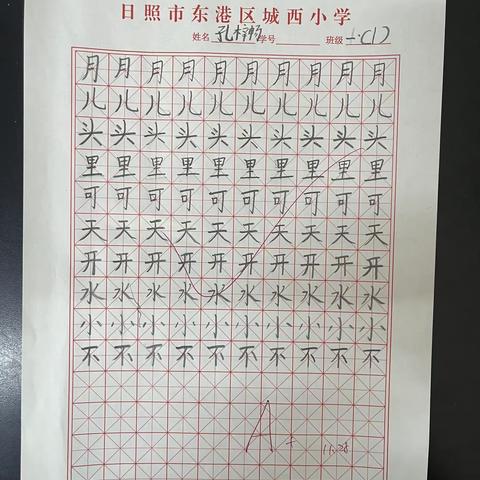 日照市东港区城西小学
姓名 孔梓畅 学号 班级 一.(1)
月月月月月月月月月月
儿儿儿儿儿儿儿儿儿儿
头头头头头头头头头头
里里里里里里里里里里
可可可可可可可可可可
天天天天天天天天天天
开开开开开开开开开开
水水水水水水水水水水
小小小小小小小小小小
不不不不不不不不不不
A+ 11.28